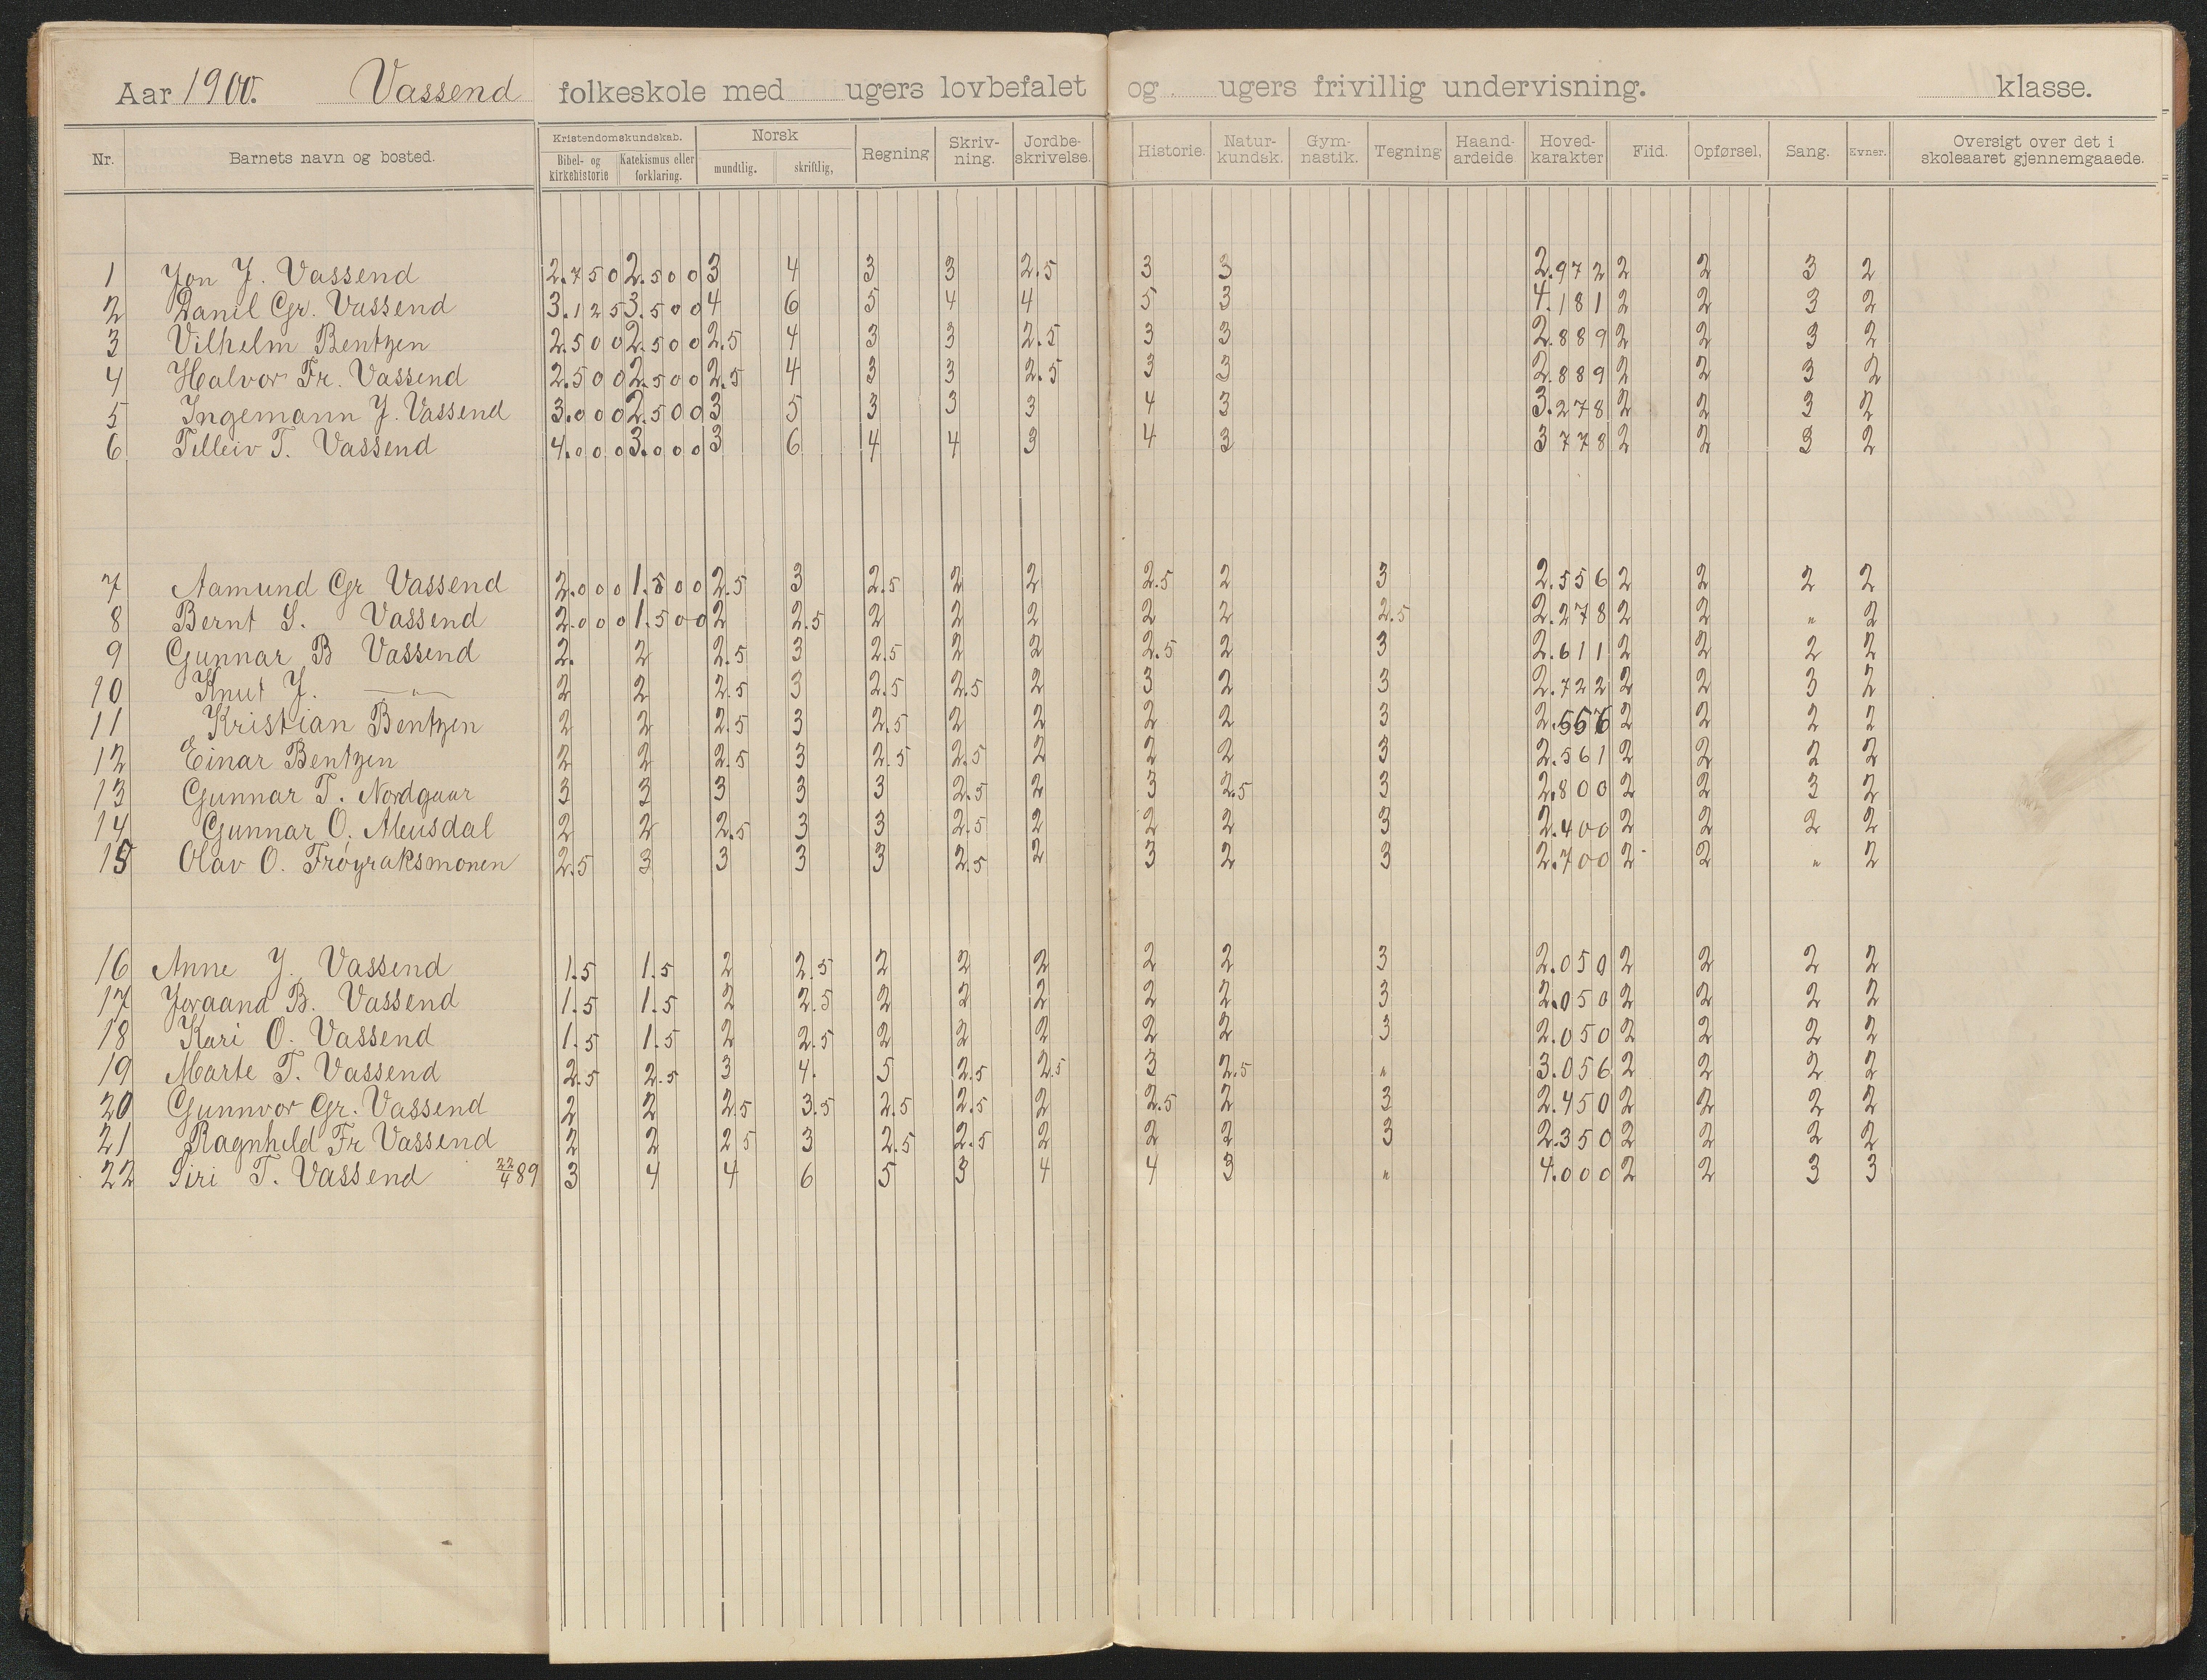 Aar 1900. Vassend folkeskole med ugers lovbefalet og ugers frivillig undervisning. klasse.
Nr. Barnets navn og bosted. Kristendomskundskab. Bibel- og kirkehistorie Katekismus eller forklaring. Norsk mundtlig. skriftlig, Regning Skriv-ning. Jordbe-skrivelse. Historie. Natur-kundsk. Gym-nastik. Tegning Haand-arbeide Hoved-karakter Flid. Opførsel, Sang. Evner. Oversigt over det i skoleaaret gjennemgaaede.
1 Jon J. Vassend 2.750 2.500 3 4 3 3 2.5 3 3 2.972 2 2 3 2
2 Daniel Gr. Vassend 3.125 3.500 4 6 5 4 4 5 3 4.181 2 2 3 2
3 Vilhelm Bentzen 2.500 2.500 2.5 4 3 3 2.5 3 3 2.889 2 2 3 2
4 Halvor Fr. Vassend 2.500 2.500 2.5 4 3 3 2.5 3 3 2.889 2 2 3 2
5 Ingemann J. Vassend 3.000 2.500 3 5 3 3 3 4 3 3.278 2 2 3 2
6 Telleiv T. Vassend 4.000 3.000 3 6 4 4 3 4 3 3 778 2 2 3 2
7 Aamund Gr Vassend 2.000 1.500 2.5 3 2.5 2 2 2.5 2 3 2.556 2 2 2 2
8 Bernt S. Vassend 2.000 1.500 2 2.5 2 2 2 2 2 2.5 2.278 2 2 " 2
9 Gunnar B Vassend 2. 2 2.5 3 2.5 2 2 2.5 2 3 2.611 2 2 2 2
10 Knut J. —"— 2 2 2.5 3 2.5 2.5 2 3 2 3 2.722 2 2 3 2
11 Kristian Bentzen 2 2 2.5 3 2.5 2 2 2 2 3 2.556 2 2 2 2
12 Einar Bentzen 2 2 2.5 3 2.5 2.5 2 2 2 3 2.561 2 2 2 2
13 Gunnar T. Nordgaar 3 3 3 3 3 2.5 2 3 2.5 3 2.800 2 2 3 2
14 Gunnar O. Meusdal 2 2 2.5 3 3 2.5 2 2 2 3 2.400 2 2 2 2
15 Olav O. Frøyraksmonen 2.5 3 3 3 3 2.5 2 3 2 3 2.700 2 2 " 2
16 Anne J. Vassend 1.5 1.5 2 2.5 2 2 2 2 2 3 2.050 2 2 2 2
17 Joraand B. Vassend 1.5 1.5 2 2.5 2 2 2 2 2 3 2.050 2 2 2 2
18 Kari O. Vassend 1.5 1.5 2 2.5 2 2 2 2 2 3 2.050 2 2 2 2
19 Marte T. Vassend 2.5 2.5 3 4. 5 2.5 2.5 3 2.5 " 3.056 2 2 2 2
20 Gunnvor Gr. Vassend 2 2 2.5 3.5 2.5 2.5 2 2.5 2 3 2.450 2 2 2 2
21 Ragnhild Fr Vassend 2 2 2 5 3 2.5 2.5 2 2 2 3 2.350 2 2 2 2
22 Siri T. Vassend 22/4 89 3 4 4 6 5 3 4 4 3 " 4.000 2 2 3 3